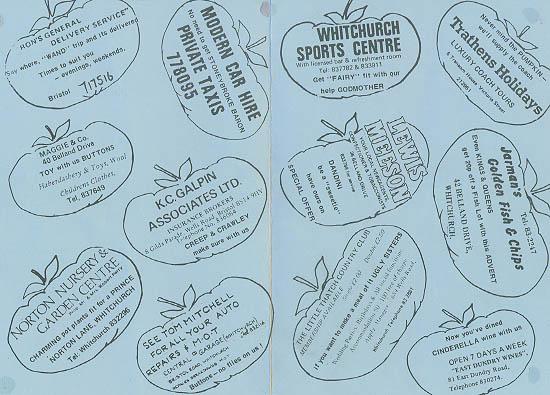 RON'S GENERAL
DELIVERY SERVICE"
Say where, "WAND" trip and its delivered
Times to suit you
- evenings, weekends.
Bristol 771516
MODERN CAR HIRE
No need to get STONEYBROKE BARON
PRIVATE TAXIS
778095
MAGGIE & Co.
40 Belland Drive
TOY with us BUTTONS
Haberdashery & Toys, Wool
Childrens Clothes,
Tel. 837649
K.C. GALPIN
ASSOCIATES LTD.
INSURANCE BROKERS
8 Gilda Parade, Wells Road, Bristol BS14 9HY
Telephone No.
CREEP & CRAWLEY
make sure with us
NORTON NURSERY &
GARDEN CENTRE
CHARMING pot plants fit for a PRINCE
NORTON LANE, WHITCHURCH
Tel: Whitchurch 832296
SEE TOM MITCHELL
FOR ALL YOUR AUTO
REPAIRS & M.O.T
CENTRAL GARAGE (WHITCHURCH)
BRISTOL ROAD, WHITCHURCH
Buttons - no flies on us!
WHITCHURCH
SPORTS CENTRE
With licensed bar & refreshment room
Tel: 837782 & 833911
Get "FAIRY" fit with our
help GODMOTHER
Never mind the PUMPKIN -
we'll supply the coach
Trathens Holidays
LUXURY COACH TOURS
Victoria Street
LEWIS
MEESON
YOUR LOCAL NEWSAGENTS,
CONFECTIONERS & TOBACCONISTS
DANDINI
be a "sweetie"
have ours on
SPECIAL OFFER
Tel. 83-2247
Jarman's
Golden Fish & Chips
Even KINGS & QUEENS
get 20p off a Fish Lot with this ADVERT
42 BELLAND DRIVE,
WHITCHURCH.
THE LITTLE THATCH COUNTRY CLUB
MEMBERSHIP AVAILABLE
If you want to make a meal of it UGLY SISTERS
Now you've dined
CINDERELLA wine with us
OPEN 7 DAYS A WEEK
"EAST DUNDRY WINES",
81 East Dundry Road,
Telephone 830274.